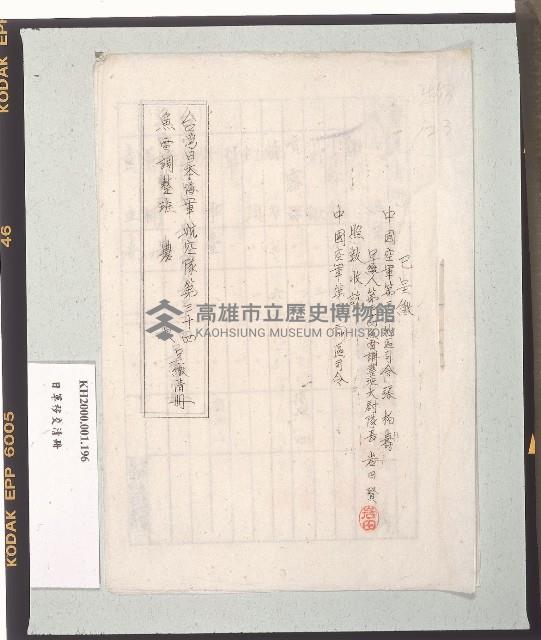 已呈繳
中國空軍第 區司令 張柏壽
呈繳人第 魚雷調整班大尉隊長 岩田賢
照數收訖
中國空軍第 區司令
台灣日本海軍航空隊第三十四
魚雷調整班 呈繳清冊
高雄市立歷史博物館
KAOHSIUNG MUSEUM OF HISTORY
KH2000.001.196
日軍移交清冊
KODAK EPP
46
KODAK EPP 6005